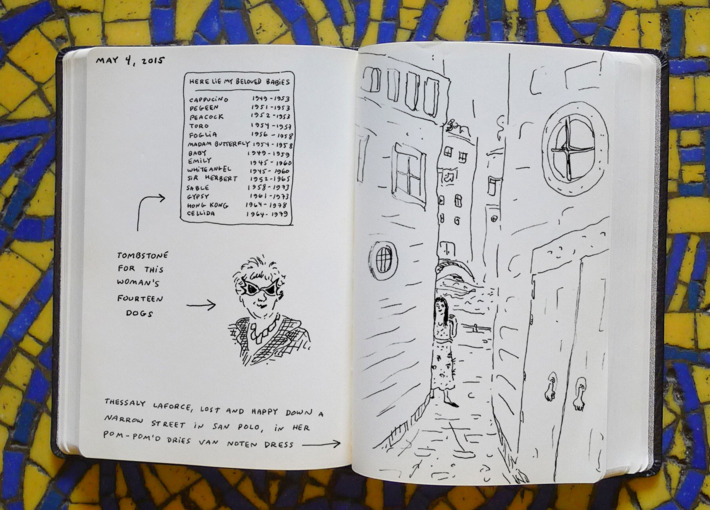 MAY 4, 2015
HERE LIE MY BELOVED BABIES
CAPPUCINO 1949-1953
PEGEEN 1951-1953
PEACOCK 1952-1953
TORO 1954-1957
FOGLIA 1956-1958
MADAM BUTTERFLY 1954-1958
BABY 1949-1959
EMILY 1945-1960
WHITE ANGEL 1945-1960
SIR HERBERT 1952-1965
SABLE 1958-1973
GYPSY 1961-1973
HONG KONG 1964-1978
CELLIDA 1964-1979
TOMBSTONE
FOR THIS
WOMAN'S
FOURTEEN
DOGS
THESSALY LAFORCE, LOST AND HAPPY DOWN A
NARROW STREET IN SAN POLO, IN HER
POM-POM'D DRIES VAN NOTEN DRESS